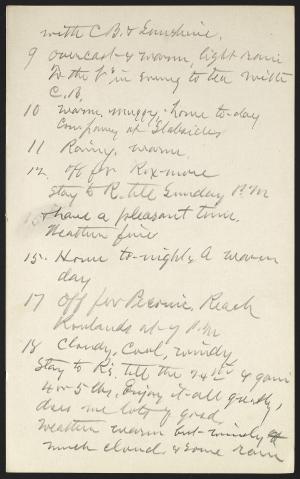 with C.B. & Sunshine.
9 Overcast & warm, light rain
To the V's in evening to tea with
C.B.
10 Warm, muggy; home to-day
Company at Slabsides
11 Rainy, warm.
12. Off for Rox-more
Stay to R. till Sunday P.M
& have a pleasant time.
Weather fine
15. Home to-night, A warm
day
17 Off for Beonie. Reach
Rowlands at 7 P.M
18 Cloudy, Cool, windy
Stay to R's. till the 24th & gain
4 or 5 lbs. Enjoy it all greatly,
does me lots of good.
Weather warm but windy
much cloud & some rain